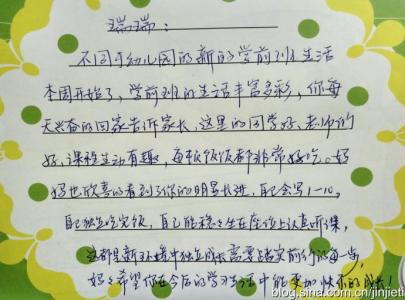 瑞瑞:
不同于幼儿园的新的学前班生活
本周开始了,学前班的生活丰富多彩,你每
天兴奋的回家告诉家长,这里的同学好、老师们
好,课程生动有趣,每顿饭饭都非常好吃。妈
妈也欣喜的看到了你的明显长进,自己会写1-10。
自己独立吃完饭,自己能稳稳坐在座位上认真听课,
这都是新环境中独立成长需要踏实前行的每一步,
妈妈希望你在今后的学习生活中能更加快乐的成长!
blog.sina.com.cn/jinjieti